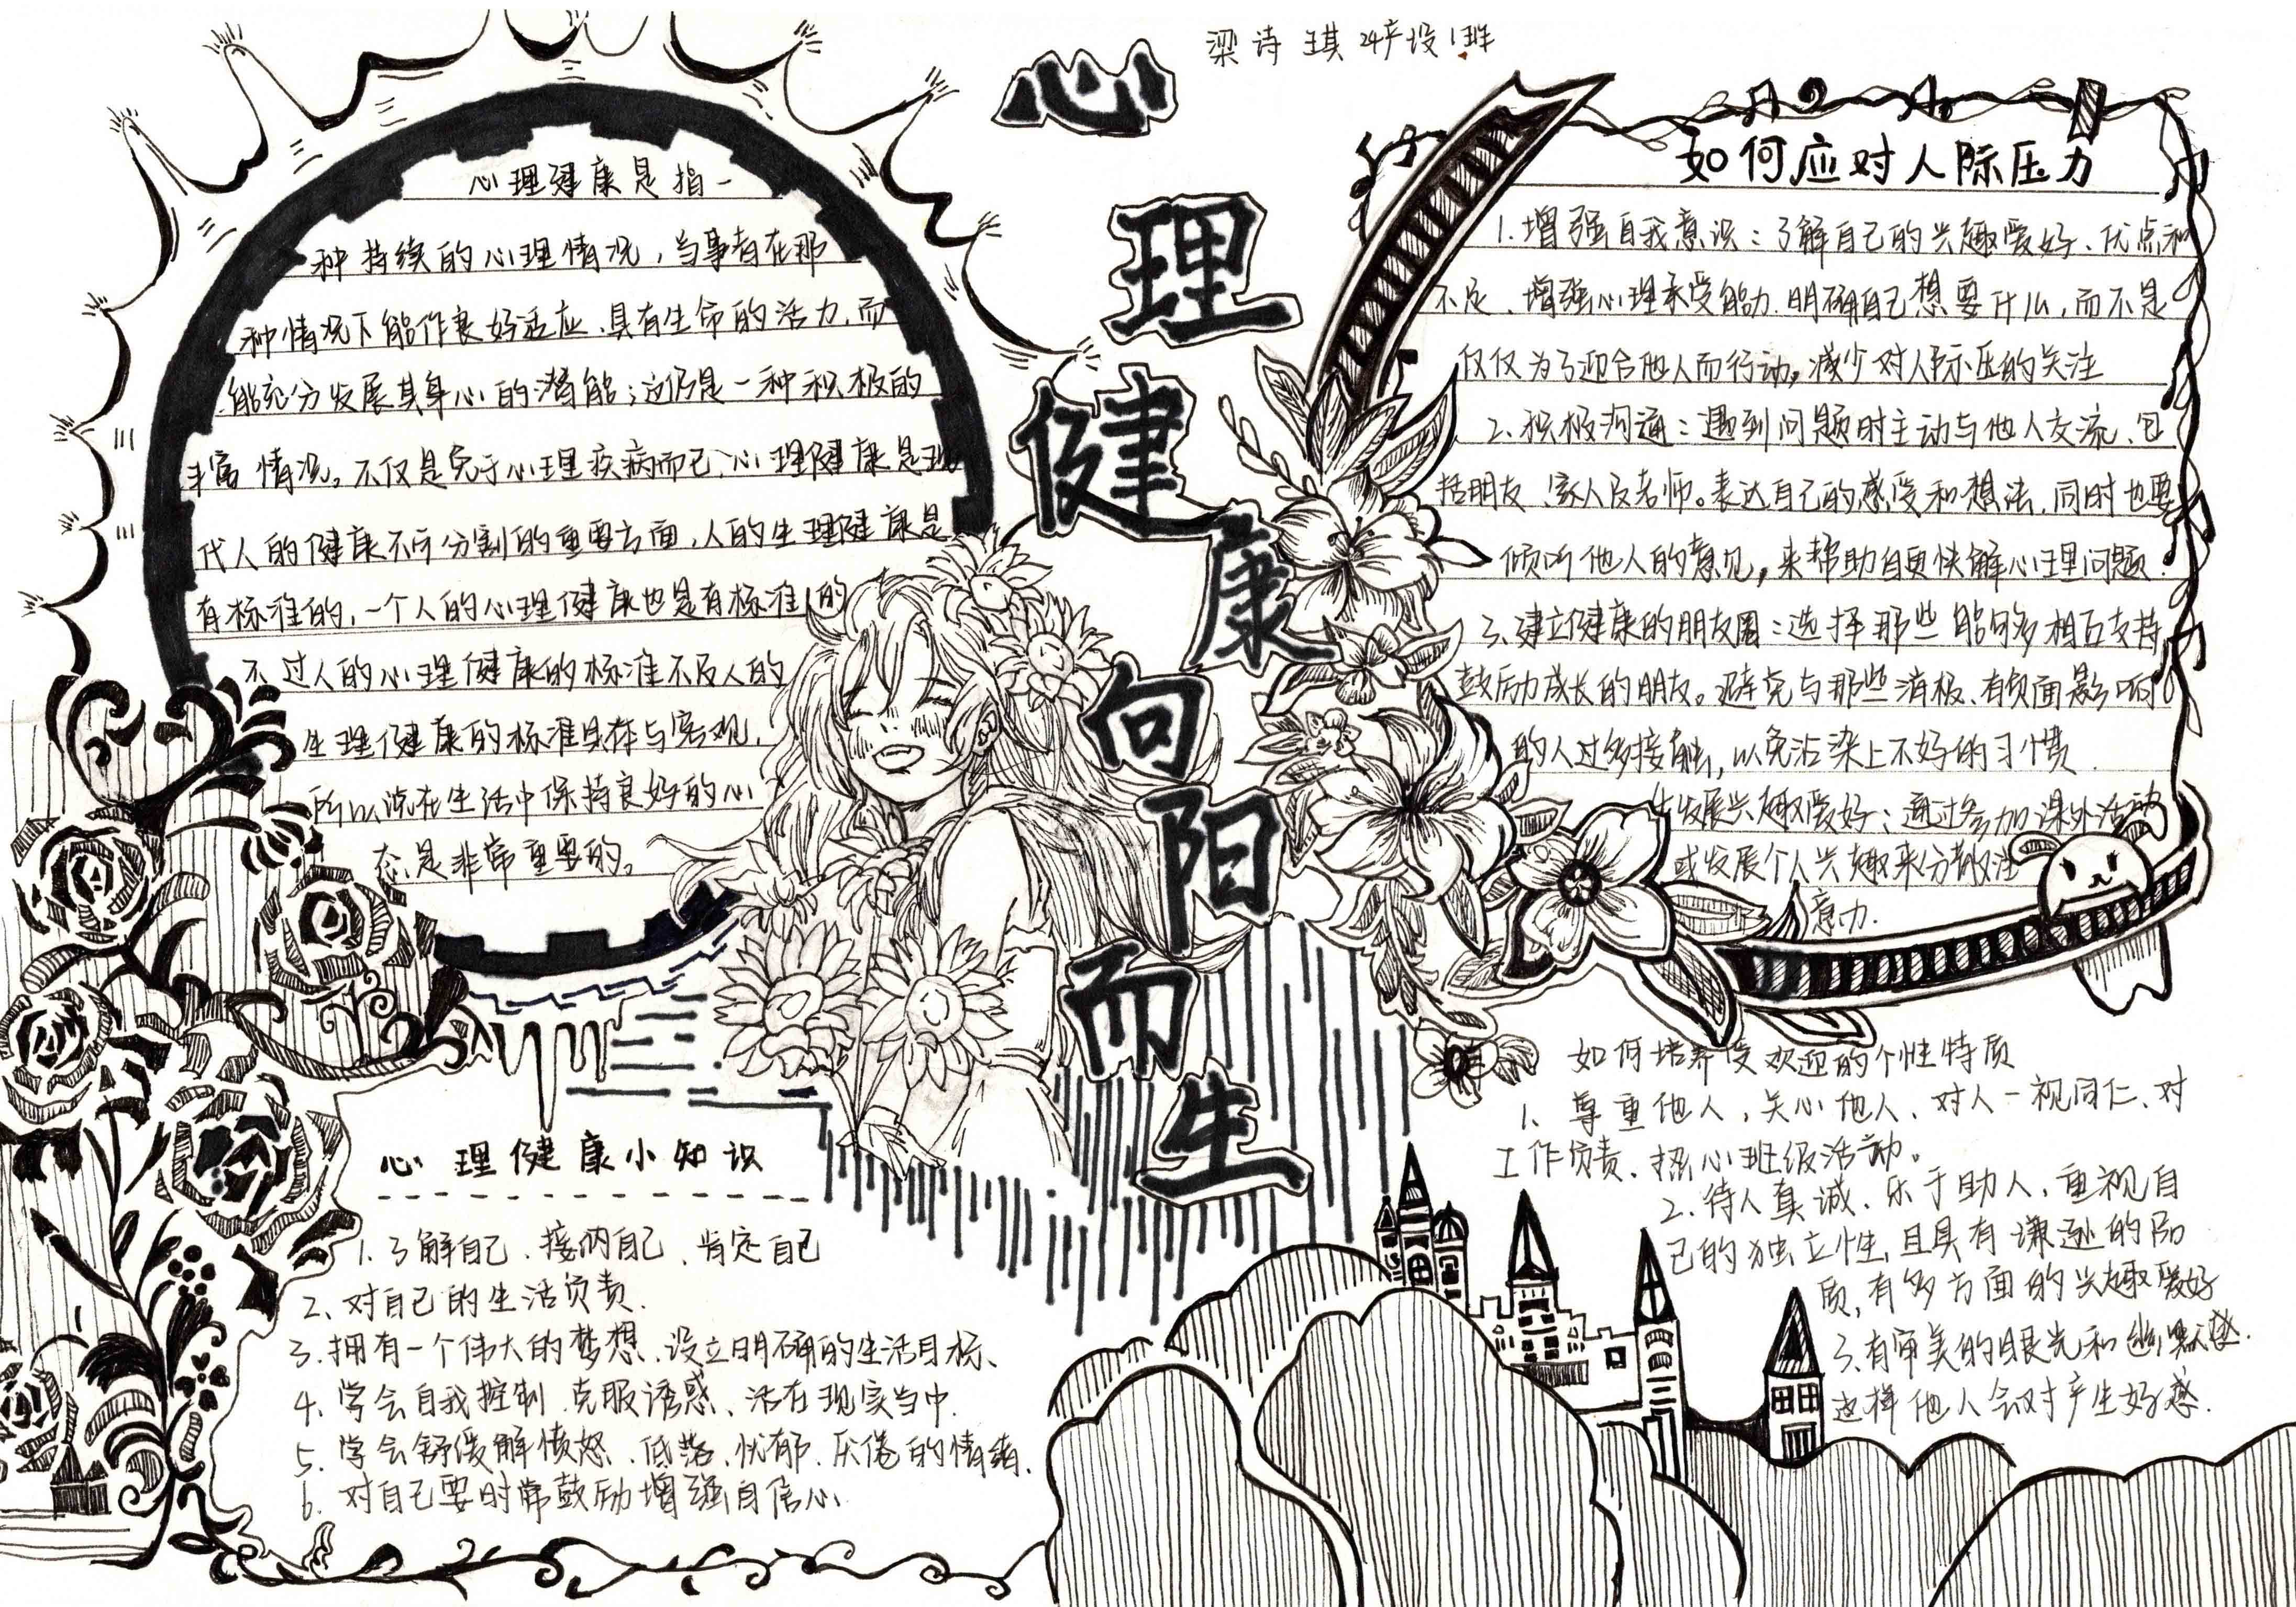 梁诗琪 24产设1班
心
理
健
康
向
阳
而
生
心理健康是指一
种持续的心理情况，当事者在那
种情况下能作良好适应、具有生命的活力，而
能充分发展其身心的潜能；这仍是一种积极的
丰富情况。不仅是免于心理疾病而已，心理健康是现
代人的健康不可分割的重要方面，人的生理健康是
有标准的，一个人的心理健康也是有标准的
不过人的心理健康的标准不及人的
生理健康的标准具体与客观，
所以说在生活中保持良好的心
态是非常重要的。
如何应对人际压力
1.增强自我意识：了解自己的兴趣爱好、优点和
不足、增强心理承受能力.明确自己想要什么，而不是
仅仅为了迎合他人而行动，减少对人际压的关注
2.积极沟通：遇到问题时主动与他人交流、包
括朋友、家人及老师。表达自己的感受和想法，同时也要
倾听他人的意见，来帮助自更快解心理问题.
3.建立健康的朋友圈：选择那些能够多相互支持
鼓励成长的朋友。避免与那些消极、有负面影响
的人过多接触，以免沾染上不好的习惯.
发展兴趣爱好：通过参加课外活动
或发展个人兴趣来分散注
意力.
心理健康小知识
1.了解自己、接纳自己、肯定自己
2.对自己的生活负责.
3.拥有一个伟大的梦想、设立明确的生活目标、
4.学会自我控制、克服诱惑、活在现实当中.
5.学会舒缓解愤怒、低落、忧郁、厌倦的情绪.
6.对自己要时常鼓励增强自信心.
如何培养受欢迎的个性特质
1、尊重他人，关心他人、对人一视同仁、对
工作负责、热心班级活动。
2.待人真诚、乐于助人，重视自
己的独立性，且具有谦逊的品
质，有多方面的兴趣爱好
3、有审美的眼光和幽默感.
这样他人会对产生好感.